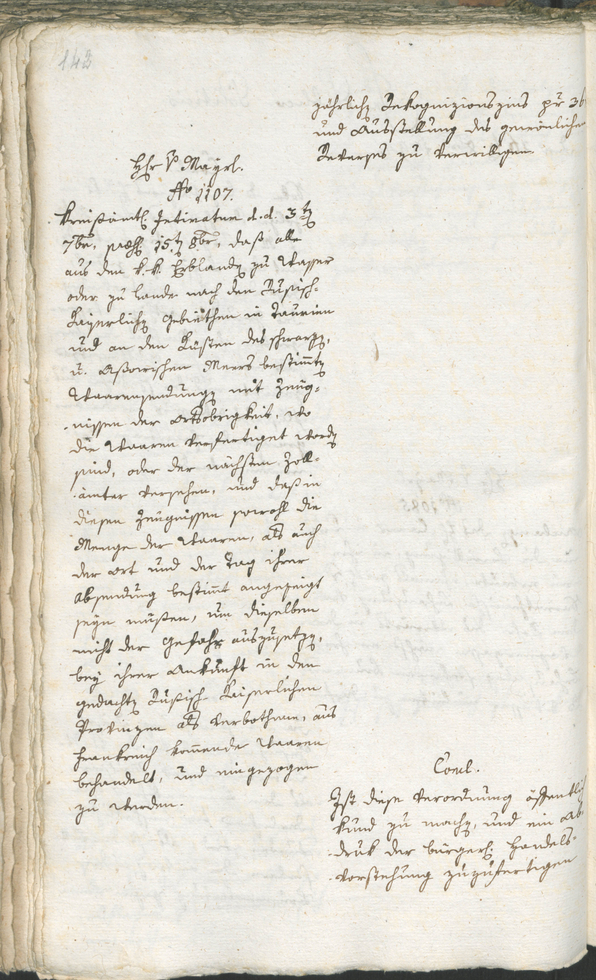 143
jährlichen Rekognizionszins pr 36
und Ausstellung des gewönlichen
Reverses zu verwilligen
Hr v Mayrl.
No 1107.
Kreisämtl. Intimaton d.d. 3ten
7br, praes. 15ten 8br, daß alle
aus den k. k. Erblanden zu Wasser
oder zu Lande nach den Rußisch-
Kayserlichen Gebiethen in Taurien
und an den Küsten des schwarzen,
u. Asowischen Meers bestimmten
Waarensendungen mit Zeug-
nissen der Ortsobrigkeit, wo
die Waaren verfertiget worden
sind, oder der nächsten Zoll-
ämter versehen, und daß in
diesen Zeugnissen sowohl die
Menge der Waaren, als auch
der Ort und der Tag ihrer
Absendung bestimmt angezeigt
seyn müßen, um dieselben
nicht der Gefahr auszusetzen,
bey ihrer Ankunft in den
gedachten Rußisch Kaiserlichen
Provinzen als verbothene, aus
Frankreich kommende Waaren
behandelt, und eingezogen
zu werden.
Concl.
Ist diese Verordnung öffentlich
kund zu machen, und ein Ab-
druk der bürgerl. Handels-
vorstehung zuzufertigen